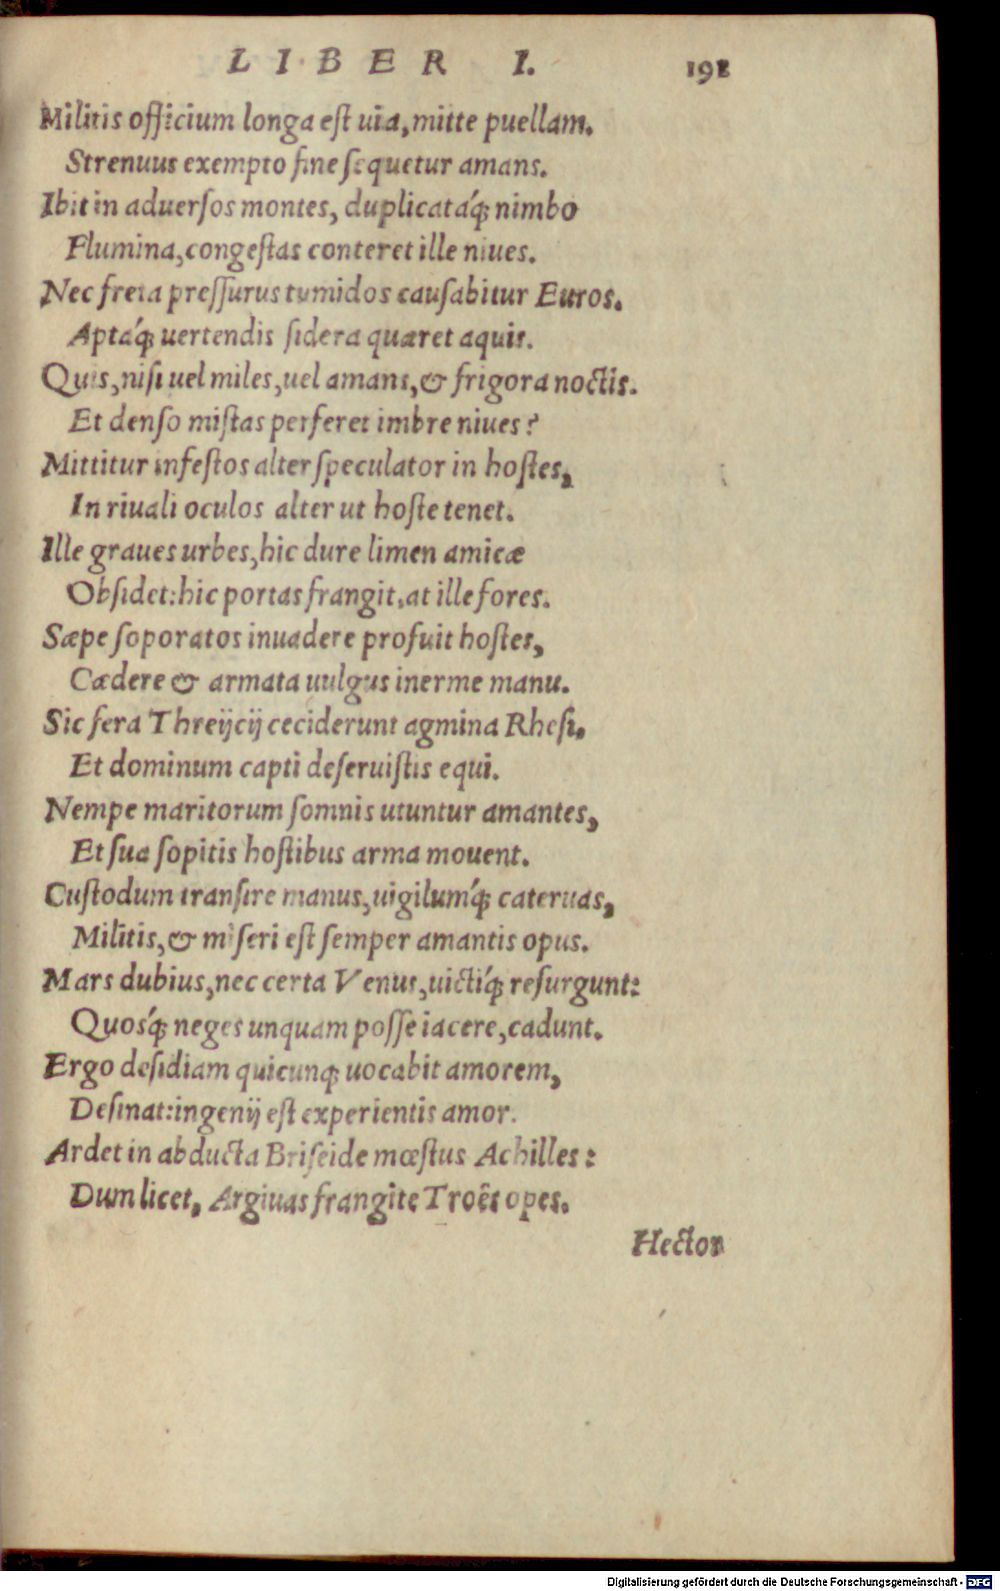 LIBER I. 191
Militis officium longa est uia, mitte puellam.
Strenuus exempto fine sequetur amans.
Ibit in aduersos montes, duplicatáq; nimbo
Flumina, congestas conteret ille niues.
Nec freta pressurus tumidos causabitur Euros.
Aptáq; uertendis sidera quæret aquis.
Quis, nisi uel miles, uel amans, & frigora noctis.
Et denso mistas perferet imbre niues?
Mittitur infestos alter speculator in hostes,
In riuali oculos alter ut hoste tenet.
Ille graues urbes, hic duræ limen amicæ
Obsidet: hic portas frangit, at ille fores.
Sæpe soporatos inuadere profuit hostes,
Cædere & armata uulgus inerme manu.
Sic fera Threijcij ceciderunt agmina Rhesi.
Et dominum capti deseruistis equi.
Nempe maritorum somnis utuntur amantes,
Et sua sopitis hostibus arma mouent.
Custodum transire manus, uigilumq́; cateruas,
Militis, & miseri est semper amantis opus.
Mars dubius, nec certa Venus, uictiq́; resurgunt:
Quosq́; neges unquam posse iacere, cadunt.
Ergo desidiam quicunq; uocabit amorem,
Desinat: ingenij est experientis amor.
Ardet in abducta Briseide mœstus Achilles:
Dum licet, Argiuas frangite Troës opes.
Hector
Digitalisierung gefördert durch die Deutsche Forschungsgemeinschaft - DFG